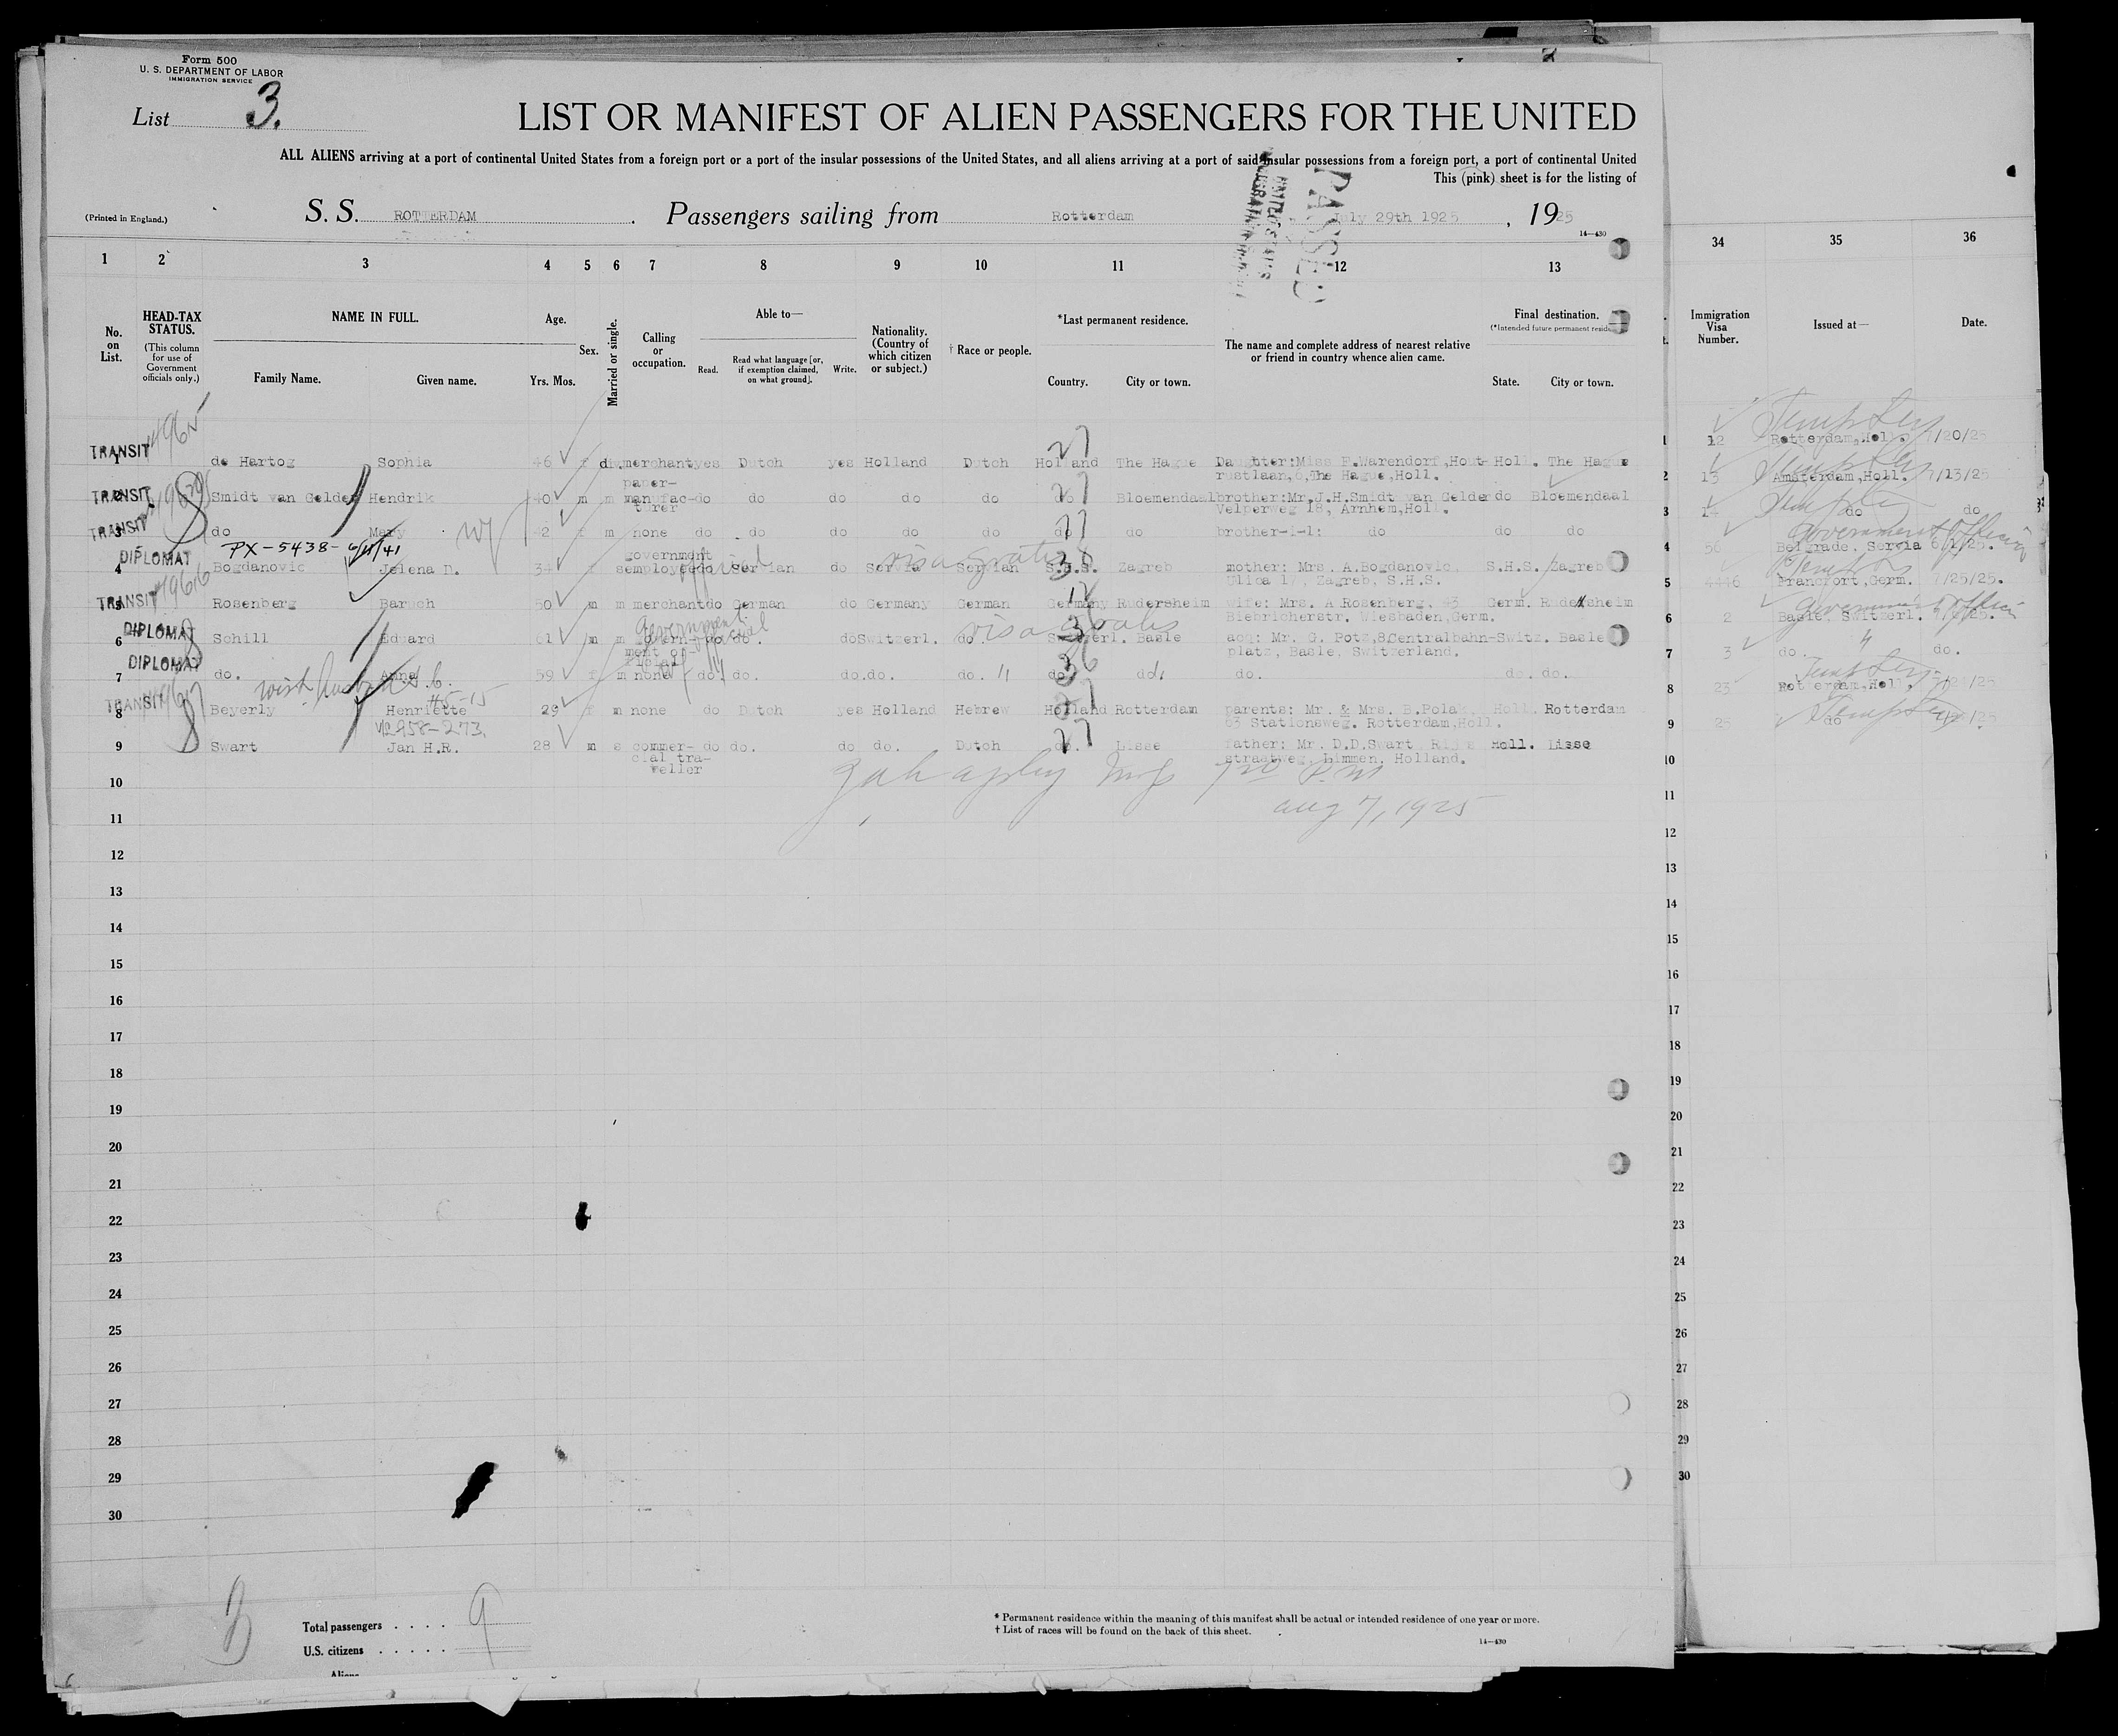 Form 500
U. S. DEPARTMENT OF LABOR
IMMIGRATION SERVICE
List 3.
LIST OR MANIFEST OF ALIEN PASSENGERS FOR THE UNITED
ALL ALIENS arriving at a port of continental United States from a foreign port or a port of the insular possessions of the United States, and all aliens arriving at a port of said insular possessions from a foreign port, a port of continental United
This (pink) sheet is for the listing of
(Printed in England.) S. S. ROTTERDAM . Passengers sailing from Rotterdam July 29th 1925 , 1925
PASSED
14—430
1 2 3 4 5 6 7 8 9 10 11 12 13 34 35 36
No. on List.
HEAD-TAX STATUS.
(This column for use of Government officials only.)
NAME IN FULL.
Family Name. Given name.
Age.
Yrs. Mos.
Sex.
Married or single.
Calling or occupation.
Able to—
Read. Read what language [or, if exemption claimed, on what ground]. Write.
Nationality. (Country of which citizen or subject.)
† Race or people.
*Last permanent residence.
Country. City or town.
The name and complete address of nearest relative or friend in country whence alien came.
Final destination.
(*Intended future permanent
State. City or town.
Immigration Visa Number.
Issued at—
Date.
TRANSIT 1 de Hartog Sophia 46 f merchant yes Dutch yes Holland Dutch Holland 27 The Hague Daughter:Miss F.Warendorf,Hout- Holl. The Hague 12 Rotterdam,Holl. 7/20/25
rustlaan,6,The Hague,Holl.
TRANSIT 2 Smidt van Gelder Hendrik 40 m m paper-manufac-turer do do do do do do 27 Bloemendaal brother:Mr.J.H.Smidt van Gelder do Bloemendaal 13 Amsterdam,Holl. 7/13/25
Velperweg 18, Arnhem,Holl.
TRANSIT 3 do Mary 42 f m none do do do do do do 27 do brother-i-l: do do do 14 do do
PX-5438- 6/11/41
DIPLOMAT 4 Bogdanovic Jelena D. 34 f s government employee do Serbian do Servia Serbian S.H.S. Zagreb mother: Mrs. A.Bogdanovic, S.H.S. Zagreb 56 Belgrade, Servia 6/1/25.
visa gratis
Government Official
Ulica 17, Zagreb, S.H.S.
TRANSIT 5 Rosenberg Baruch 50 m m merchant do German do Germany German Germany Rudersheim wife: Mrs. A Rosenberg, 43 Germ. Rudesheim 4446 Francfort,Germ. 7/25/25.
Biebricherstr. Wiesbaden,Germ.
DIPLOMAT 6 Schill Eduard 61 m m govern-ment official do do. do Switzerl. do. Switzerl. Basle acq: Mr. G. Potz,8Centralbahn- Switz. Basle 2 Basle, Switzerl.
Government official
visa gratis
platz, Basle, Switzerland.
DIPLOMAT 7 do. Anna 59 f m none do. do. do. do. do. do. do. do. do. do. 3 do. do.
TRANSIT 8 Beyerly Henriette 29 f m none do Dutch yes Holland Hebrew Holland 27 Rotterdam parents: Mr. & Mrs. B.Polak, Holl. Rotterdam 23 Rotterdam,Holl.
63 Stationsweg. Rotterdam,Holl.
9 Swart Jan H.R. 28 m s commer-cial tra-veller do do. do do. Dutch do. 27 Lisse father: Mr. D.D.Swart Holl. Lisse 25 do
straatweg, Limmen, Holland.
Aug 7, 1925
10
11
12
13
14
15
16
17
18
19
20
21
22
23
24
25
26
27
28
29
30
3
Total passengers . . . . 9
U.S. citizens . . . . .
* Permanent residence within the meaning of this manifest shall be actual or intended residence of one year or more.
† List of races will be found on the back of this sheet.
14—430